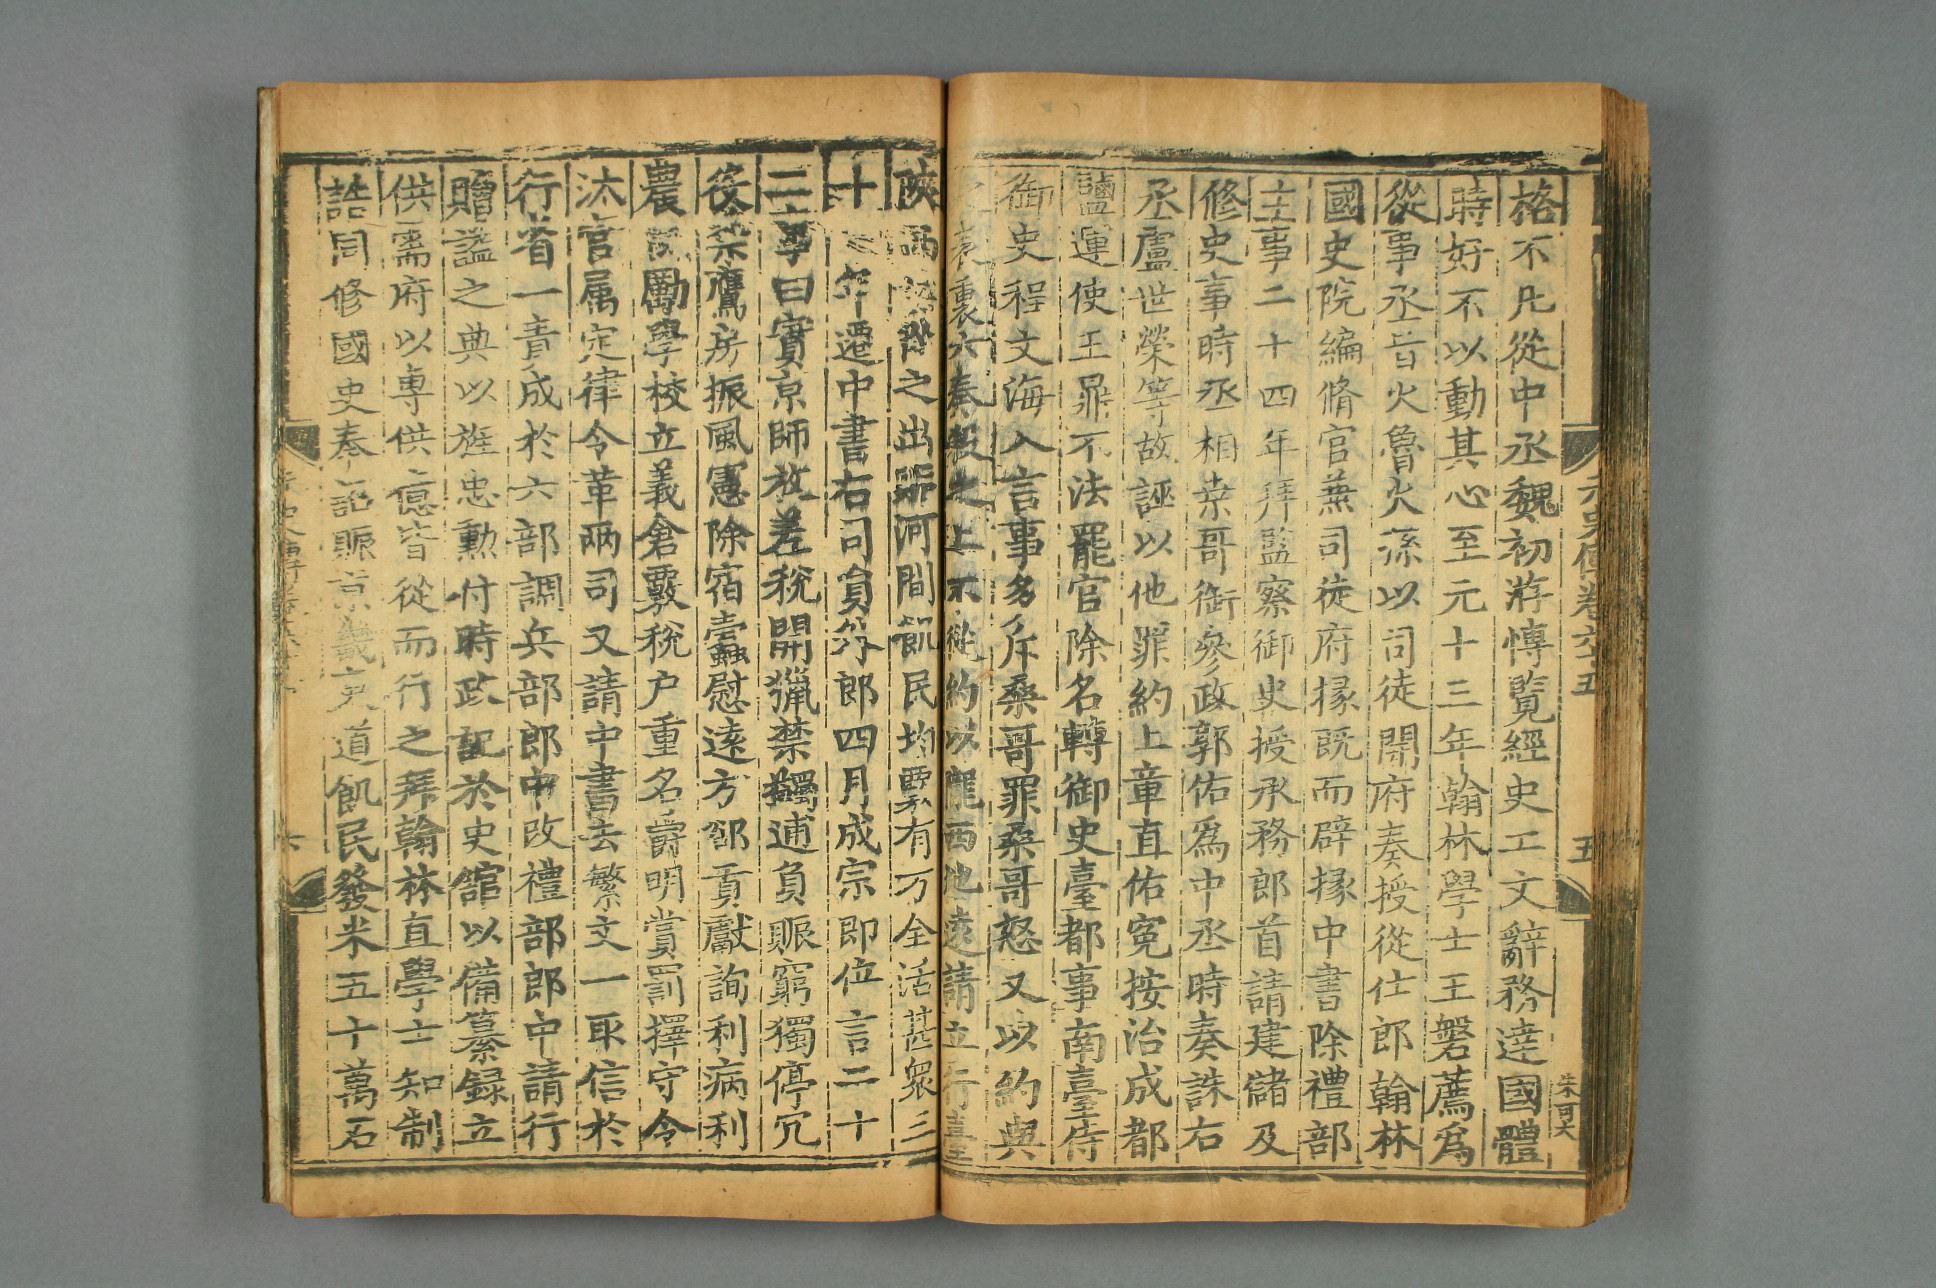 格不凡從中丞魏初游愽覧經史工文辭務達國體
時好不以動其心至元十三年翰林學士王磐薦爲
從事丞旨火魯火孫以司徒開府奏授從仕郎翰林
國史院編脩官兼司徒府掾既而辟掾中書除禮部
主事二十四年拜監察御史授承務郎首請建儲及
修史事時丞相桒哥銜參政郭佑爲中丞時奏誅右
丞盧世榮等故誣以他罪約上章直佑冤按治成都
鹽運使王鼎不法罷官除名轉御史臺都事南臺侍
御史程文海入言事多斥桑哥罪桑哥怒又以約與
之表裏六奏殺之上不從約以隴西地遠請立行臺
陜西詔從之出賑河間飢民均覈有方全活甚衆三
十一年遷中書右司貟外郎四月成宗即位言二十
二事曰實京師放差稅開獵禁蠲逋負賑窮獨停冗
役禁鷹房振風憲除宿蠧慰逺方郤貢獻詢利病利
農民勵學校立義倉覈稅户重名爵明賞罰擇守令
汰官属定律令革兩司又請中書去繁文一取信於
行省一責成於六部調兵部郎中改禮部郎中請行
贈諡之典以旌忠勲付時政記於史舘以備纂録立
供需府以専供億皆從而行之拜翰林直學士知制
誥同修國史奉詔賑京畿東道飢民發米五十萬石
元史傳卷六十五
五
朱可大
六